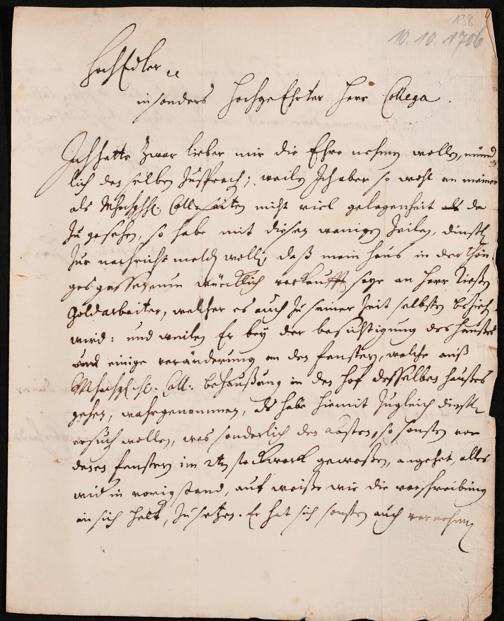 138
10. 10. 1706
HochEdler
insonders HochgeEhrter Herr Collega.
Ich hatte zwar lieber mir die Ehre nehmen wollen, münd
lich desselben Zuspruch; weilen Ich aber so wohl an meiner
als nicht viel gelegenheit da
zu gesehen, so habe mit diesen wenigen Zeilen, dienstl.
zur nachricht melden wollen, daß mein haus in der
würcklich verkaufft seye an Herr
Goldarbeiter, welcher es auch zu seiner Zeit selbsten beziehen
wird: und weilen Er bey der besichtigung des Hauses
und einige veränderung an den fenstern, welche auß
Coll. behaußung in den Hof desselben Hauses
gehen, wahrgenommen, So habe hiemit zugleich dienstl.
ersuchen wollen, was sonderlich den kasten, so sonsten vor
deren fenstern im 2ten stockwerk gewesen, angehet, alles
wider in vorig stand, auf weiße wie die verschreibung
in sich helt, zu setzen. Er hat sich sonsten auch